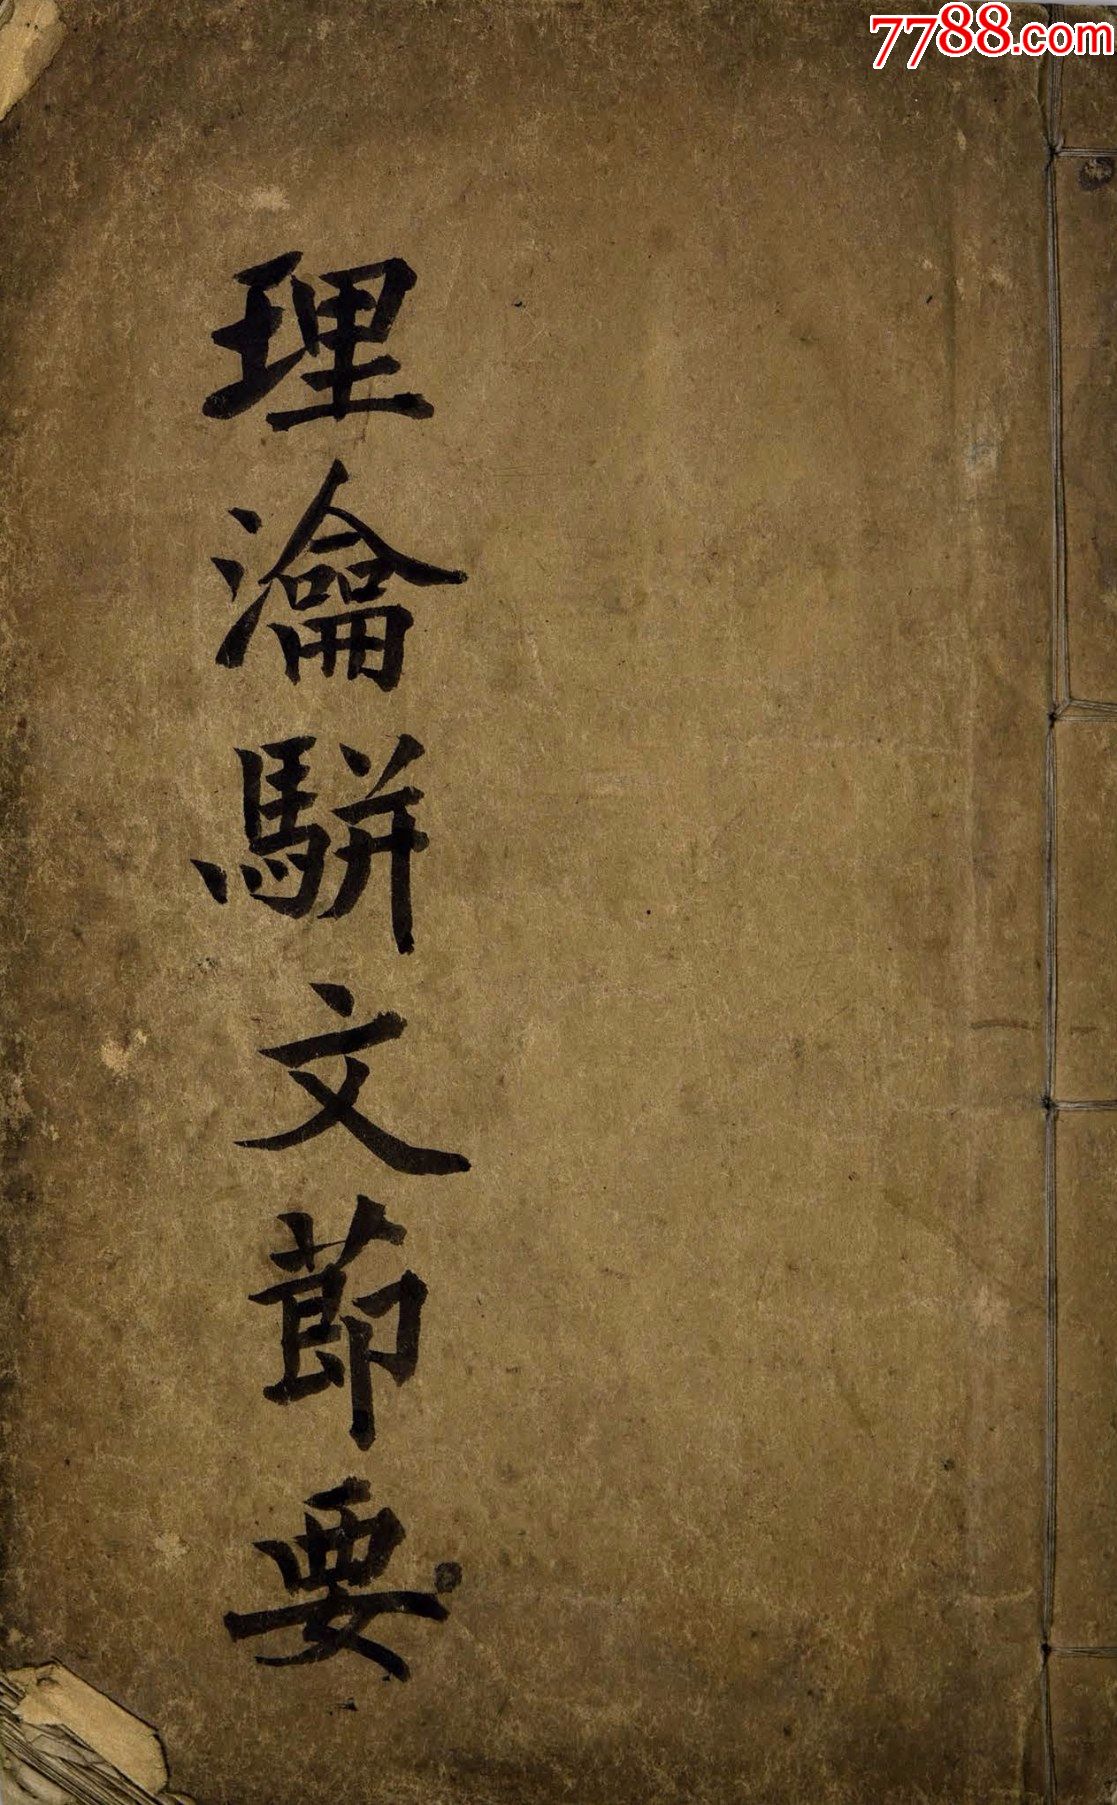 7788.com
理瀹駢文節要